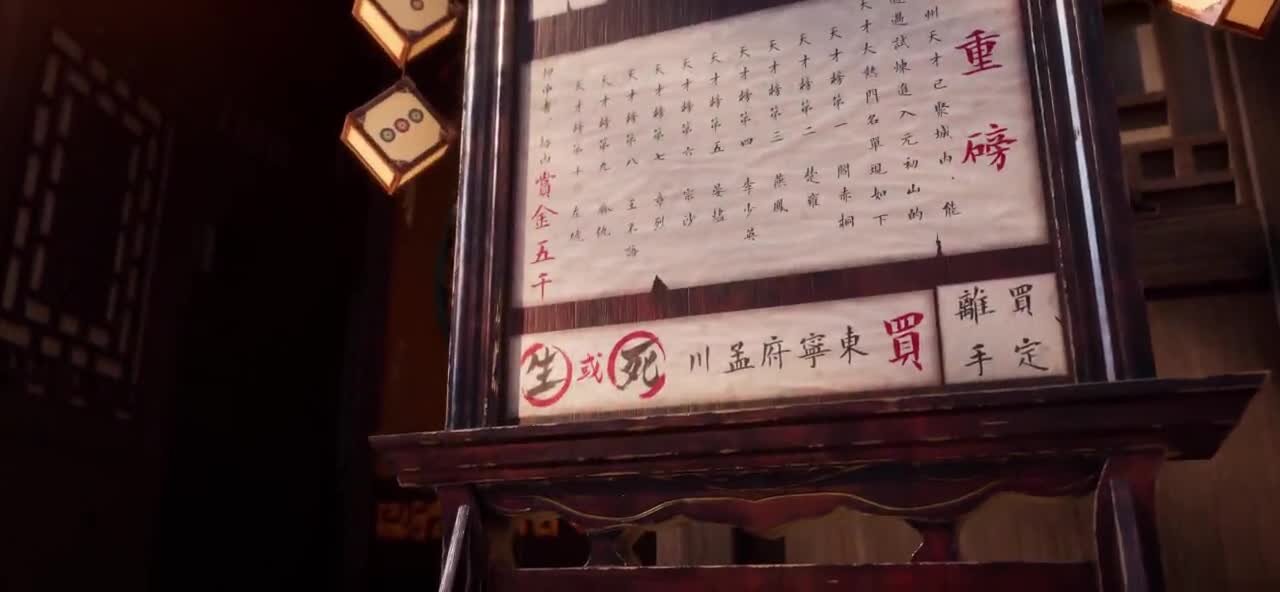 重磅
州天才已聚城内，能
過試煉進入元初山的
天才大熱門名單現如下
天才榜第一 閻赤桐
天才榜第二 楚雍
天才榜第三 燕鳳
天才榜第四 李少英
天才榜第五 晏燼
天才榜第六 宗沙
天才榜第七 章烈
天才榜第八 王不語
天才榜第九 仇
天才榜第十 左
押中者， 賞金五千
買定
離手
買東寧府孟川死或生